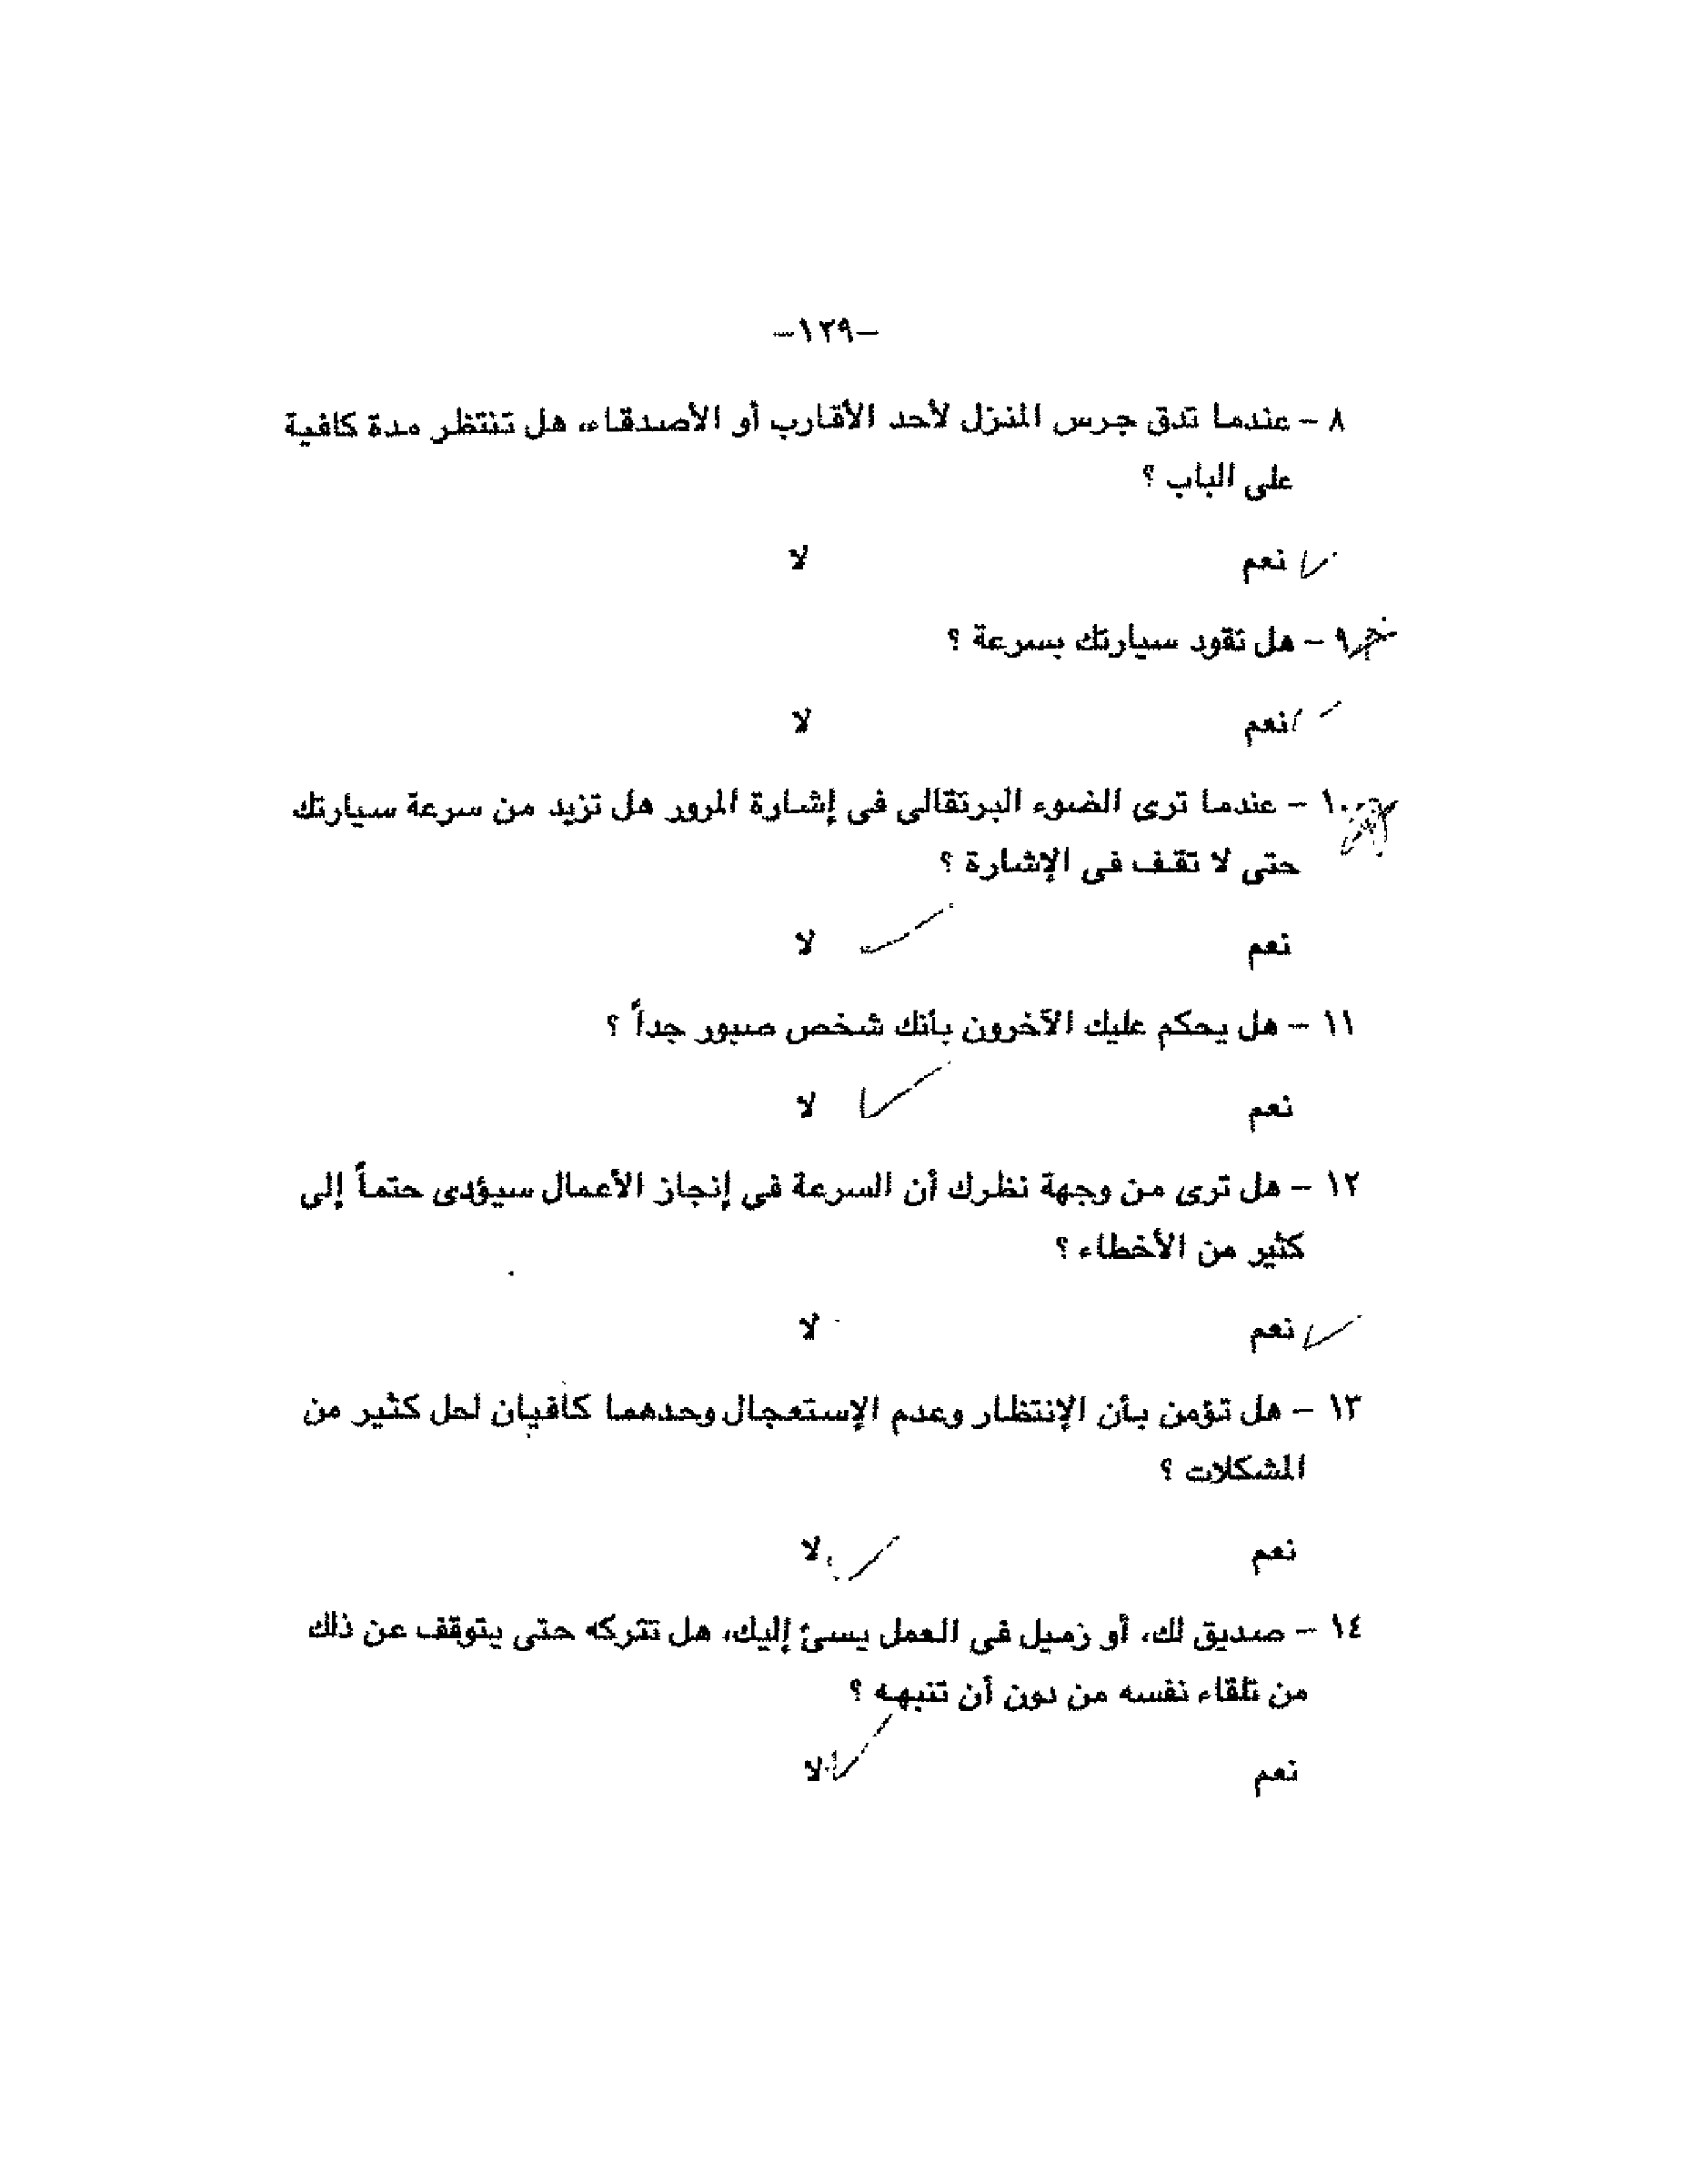 -١٢٩-
٨ - عندما تدق جرس المنزل لأحد الأقارب أو الأصدقاء، هل تنتظر مدة كافية
على الباب ؟
نعم لا
٩ - هل تقود سيارتك بسرعة ؟
نعم لا
١٠ - عندما ترى الضوء البرتقالى فى إشارة المرور هل تزيد من سرعة سيارتك
حتى لا تقف فى الإشارة ؟
نعم لا
١١ - هل يحكم عليك الآخرون بأنك شخص صبور جداً ؟
نعم لا
١٢ - هل ترى من وجهة نظرك أن السرعة في إنجاز الأعمال سيؤدى حتماً إلى
كثير من الأخطاء ؟
نعم لا
١٣ - هل تؤمن بأن الإنتظار وعدم الإستعجال وحدهما كافيان لحل كثير من
المشكلات ؟
نعم لا
١٤ - صديق لك، أو زميل فى العمل يسئ إليك، هل تتركه حتى يتوقف عن ذلك
من تلقاء نفسه من دون أن تنبهه ؟
نعم لا